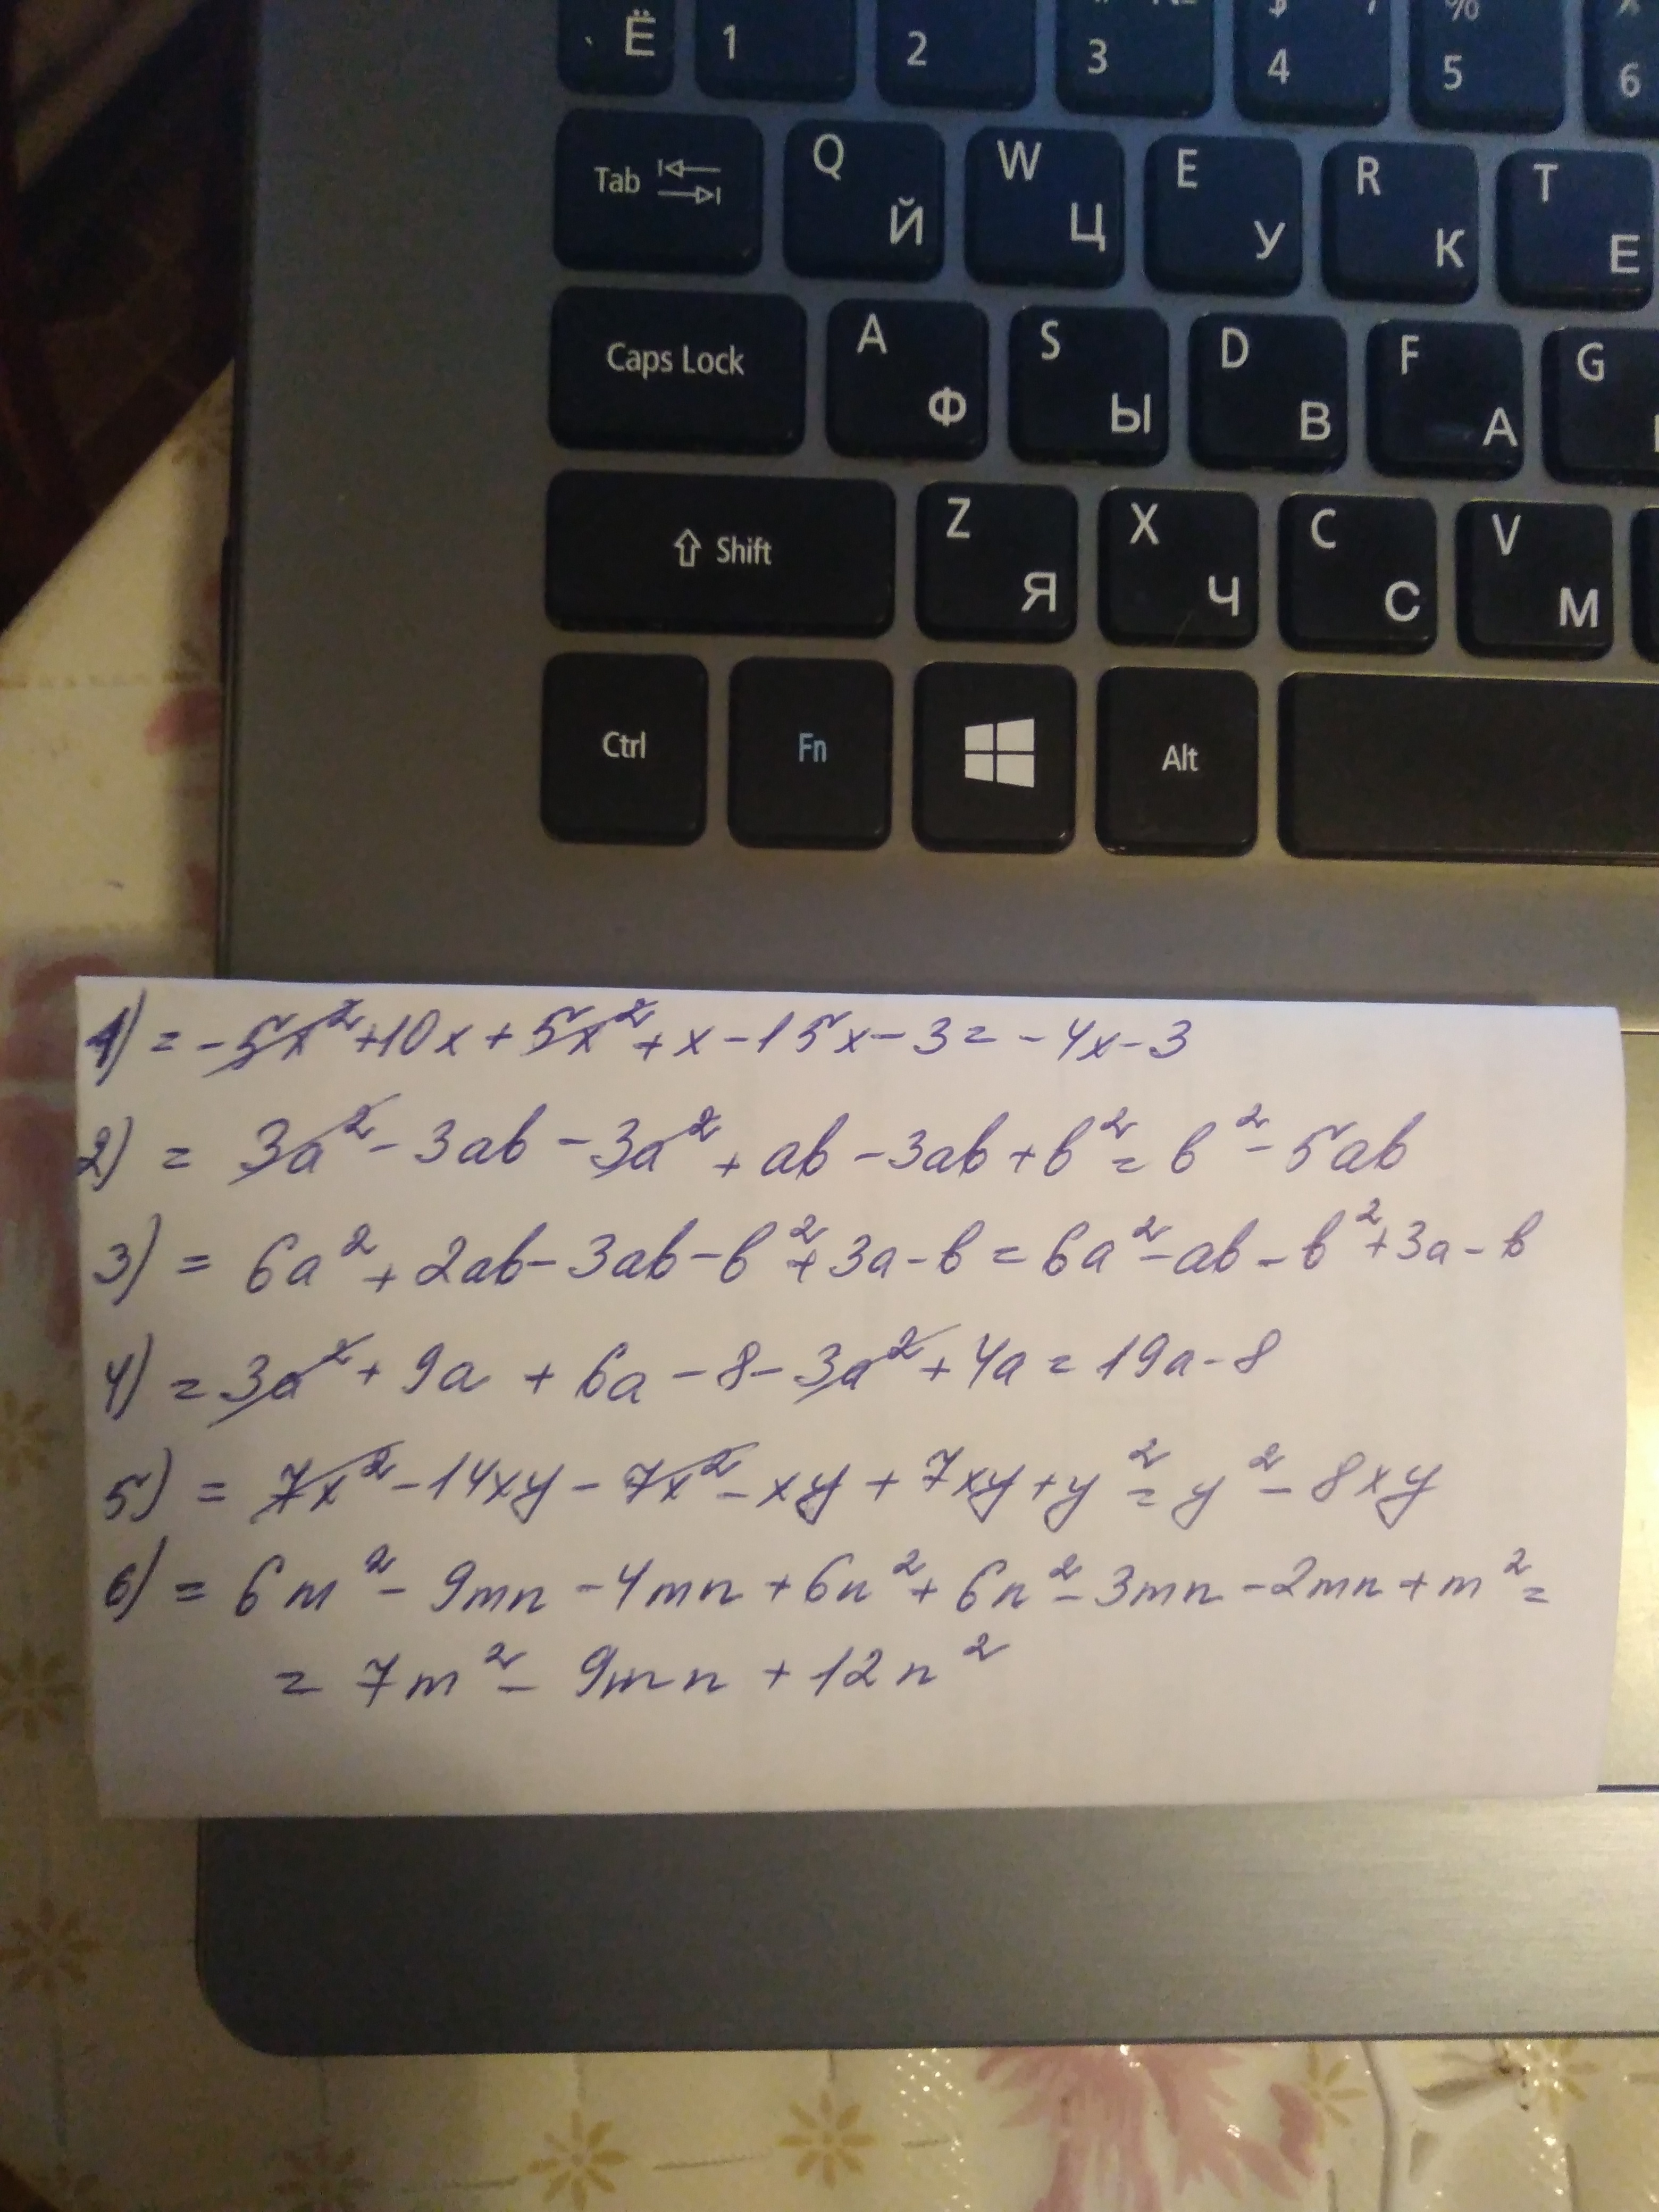 ` Ё 1 2 3 $ 4 % 5 6
Tab Q Й W Ц E У R К T Е
Caps Lock A Ф S Ы D В F А G
⇧ Shift Z Я X Ч C С V М
Ctrl Fn Alt
1) = -5x²+10x+5x²+x-15x-3= -4x-3
2) = 3a²-3ab-3a²+ab-3ab+b²=b²-5ab
3) = 6a²+2ab-3ab-b²+3a-b=6a²-ab-b²+3a-b
4) =3a²+9a+6a-8-3a²+4a=19a-8
5) = 7x²-14xy-7x²-xy+7xy+y²=y²-8xy
6) = 6m²-9mn-4mn+6n²+6n²-3mn-2mn+m²=
= 7m²-9mn+12n²